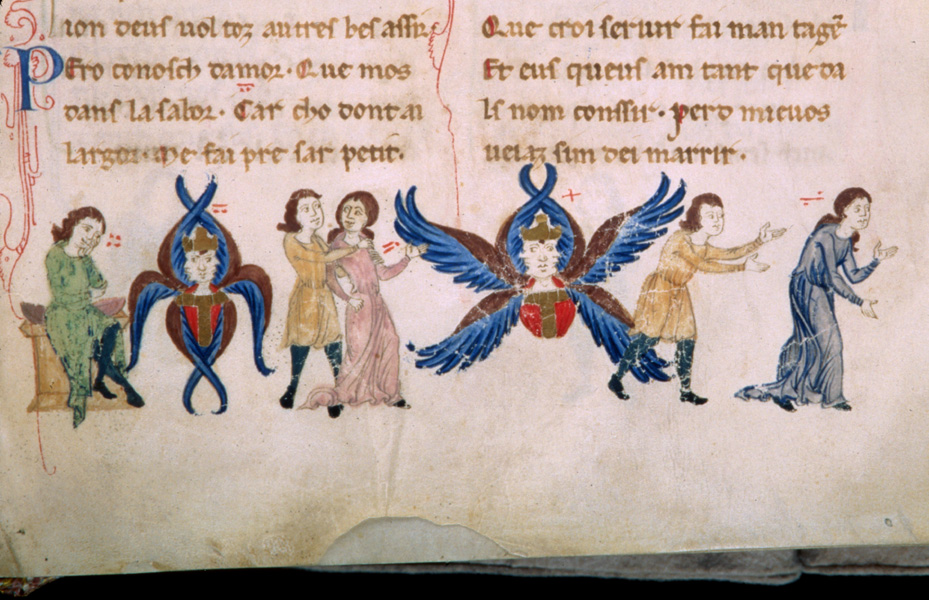 ion deus uol toz autres bes assir
Pero conosch damor · Que mos
dans la sabor · Car cho dont ai
largor · Me fai pre sar petit ·
Que croi seruir fai man tagẽ
Et eus queus am tant que da
ls nom conssir · perd mieuos
ueiaz sim dei marrir ·